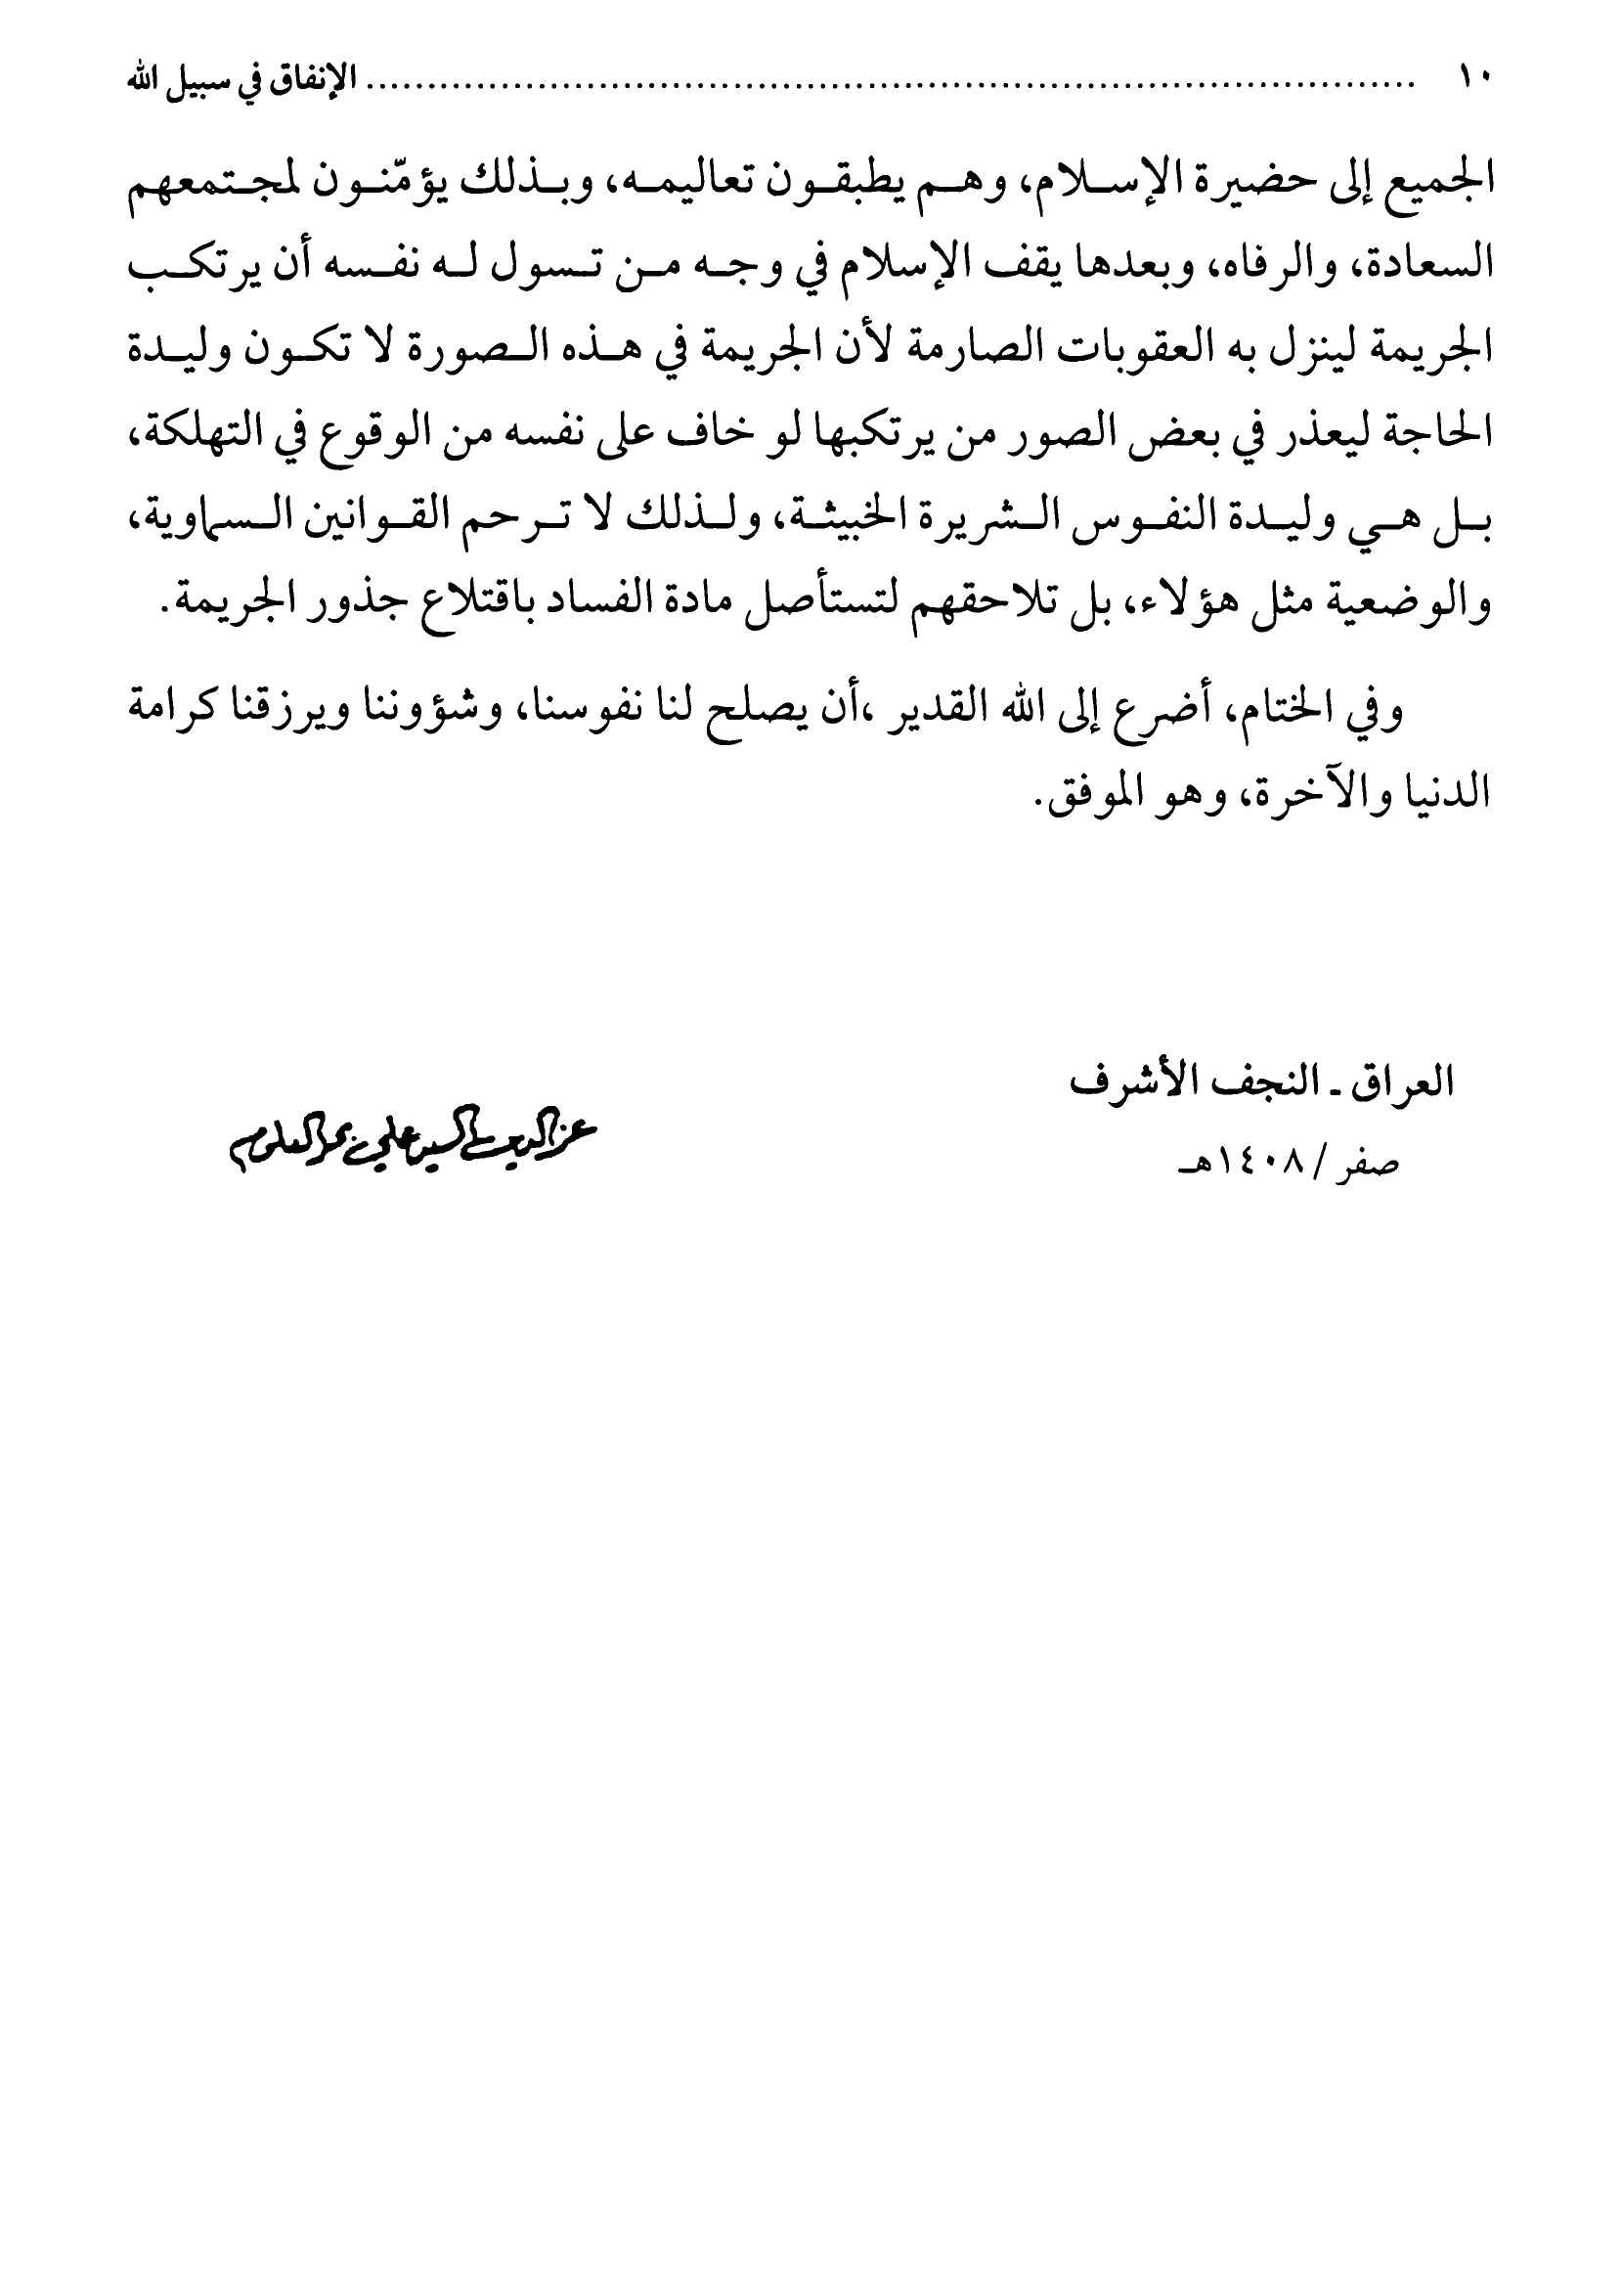 ١٠ ........................................................................................ الإنفاق في سبيل الله
الجميع إلى حضيرة الإسلام، وهم يطبقون تعاليمه، وبذلك يؤمّنون لمجتمعهم
السعادة، والرفاه، وبعدها يقف الإسلام في وجه من تسول له نفسه أن يرتكب
الجريمة لينزل به العقوبات الصارمة لأن الجريمة في هذه الصورة لا تكون وليدة
الحاجة ليعذر في بعض الصور من يرتكبها لو خاف على نفسه من الوقوع في التهلكة،
بل هي وليدة النفوس الشريرة الخبيثة، ولذلك لا ترحم القوانين السماوية،
والوضعية مثل هؤلاء، بل تلاحقهم لتستأصل مادة الفساد باقتلاع جذور الجريمة.
وفي الختام، أضرع إلى الله القدير ،أن يصلح لنا نفوسنا، وشؤوننا ويرزقنا كرامة
الدنيا والآخرة، وهو الموفق.
العراق ـ النجف الأشرف
عز الدين السيد علي بحر العلوم
صفر / ١٤٠٨هـ